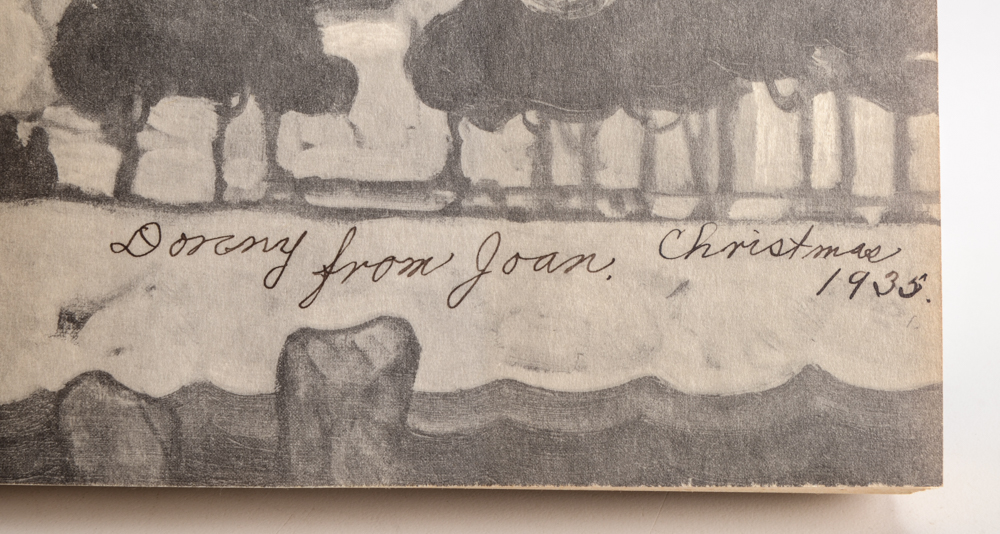 from Joan. Christmas
1935.